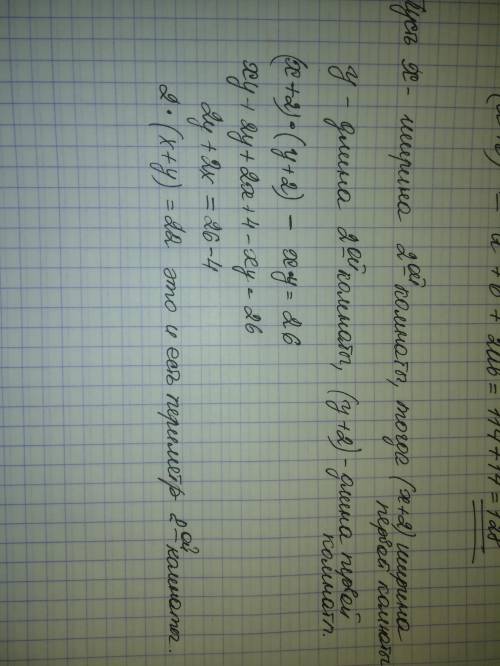 - a + b + 2ab = 114 + 14 = 128
Пусть x - ширина 2ой комнаты, тогда (x+2) ширина
первой комнаты
y - длина 2ой комнаты, (y+2) - длина первой
комнаты.
(x+2)·(y+2) - xy = 26
xy + 2y + 2x + 4 - xy = 26
2y + 2x = 26-4
2·(x+y) = 22 это и есть периметр 2ой комнаты.